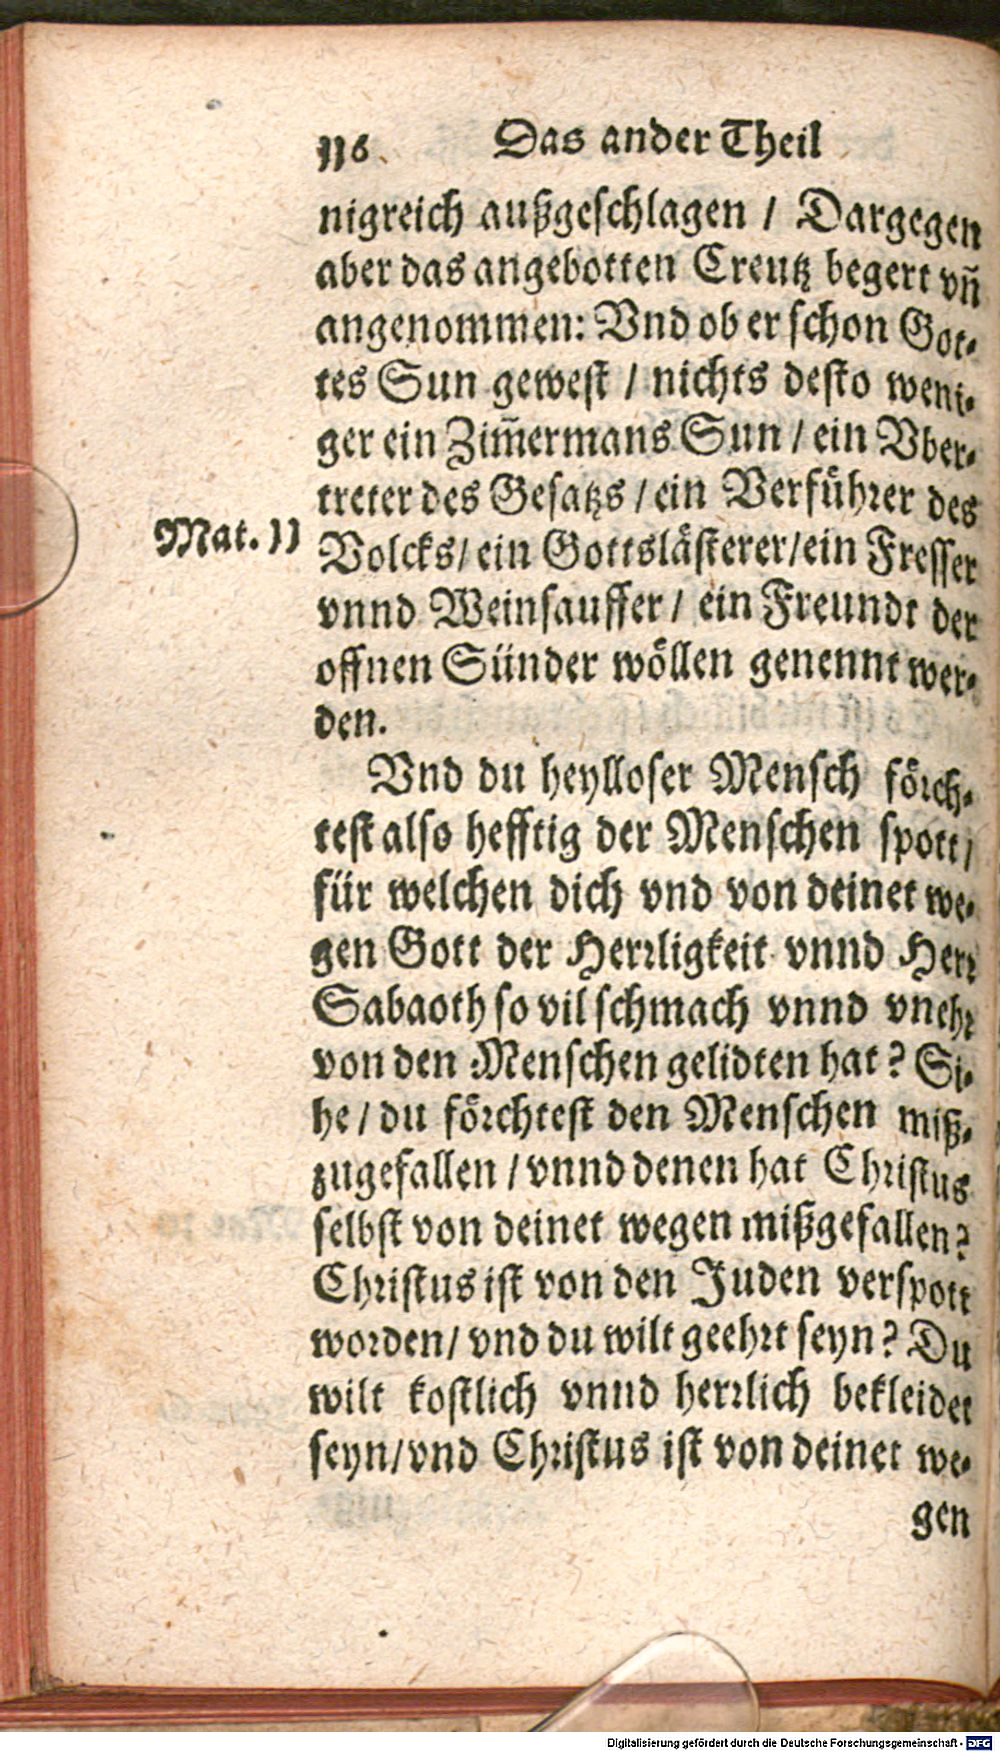 116 Das ander Theil
nigreich außgeschlagen / Dargegen
aber das angebotten Creutz begert vn̄
angenommen: Vnd ob er schon Got-
tes Sun gewest / nichts desto weni-
ger ein Zim̄ermans Sun / ein Vber-
treter des Gesatzs / ein Verführer des
Mat. 11
Volcks / ein Gottslästerer / ein Fresser
vnnd Weinsauffer / ein Freundt der
offnen Sünder wöllen genennt wer-
den.
Vnd du heylloser Mensch förch-
test also hefftig der Menschen spott /
für welchen dich vnd von deinet we-
gen Gott der Herrligkeit vnnd Herr
Sabaoth so vil schmach vnnd vnehr
von den Menschen gelidten hat? Si-
he / du förchtest den Menschen miß-
zugefallen / vnnd denen hat Christus
selbst von deinet wegen mißgefallen?
Christus ist von den Juden verspott
worden / vnd du wilt geehrt seyn? Du
wilt kostlich vnnd herrlich bekleidet
seyn / vnd Christus ist von deinet we-
gen
Digitalisierung gefördert durch die Deutsche Forschungsgemeinschaft - DFG